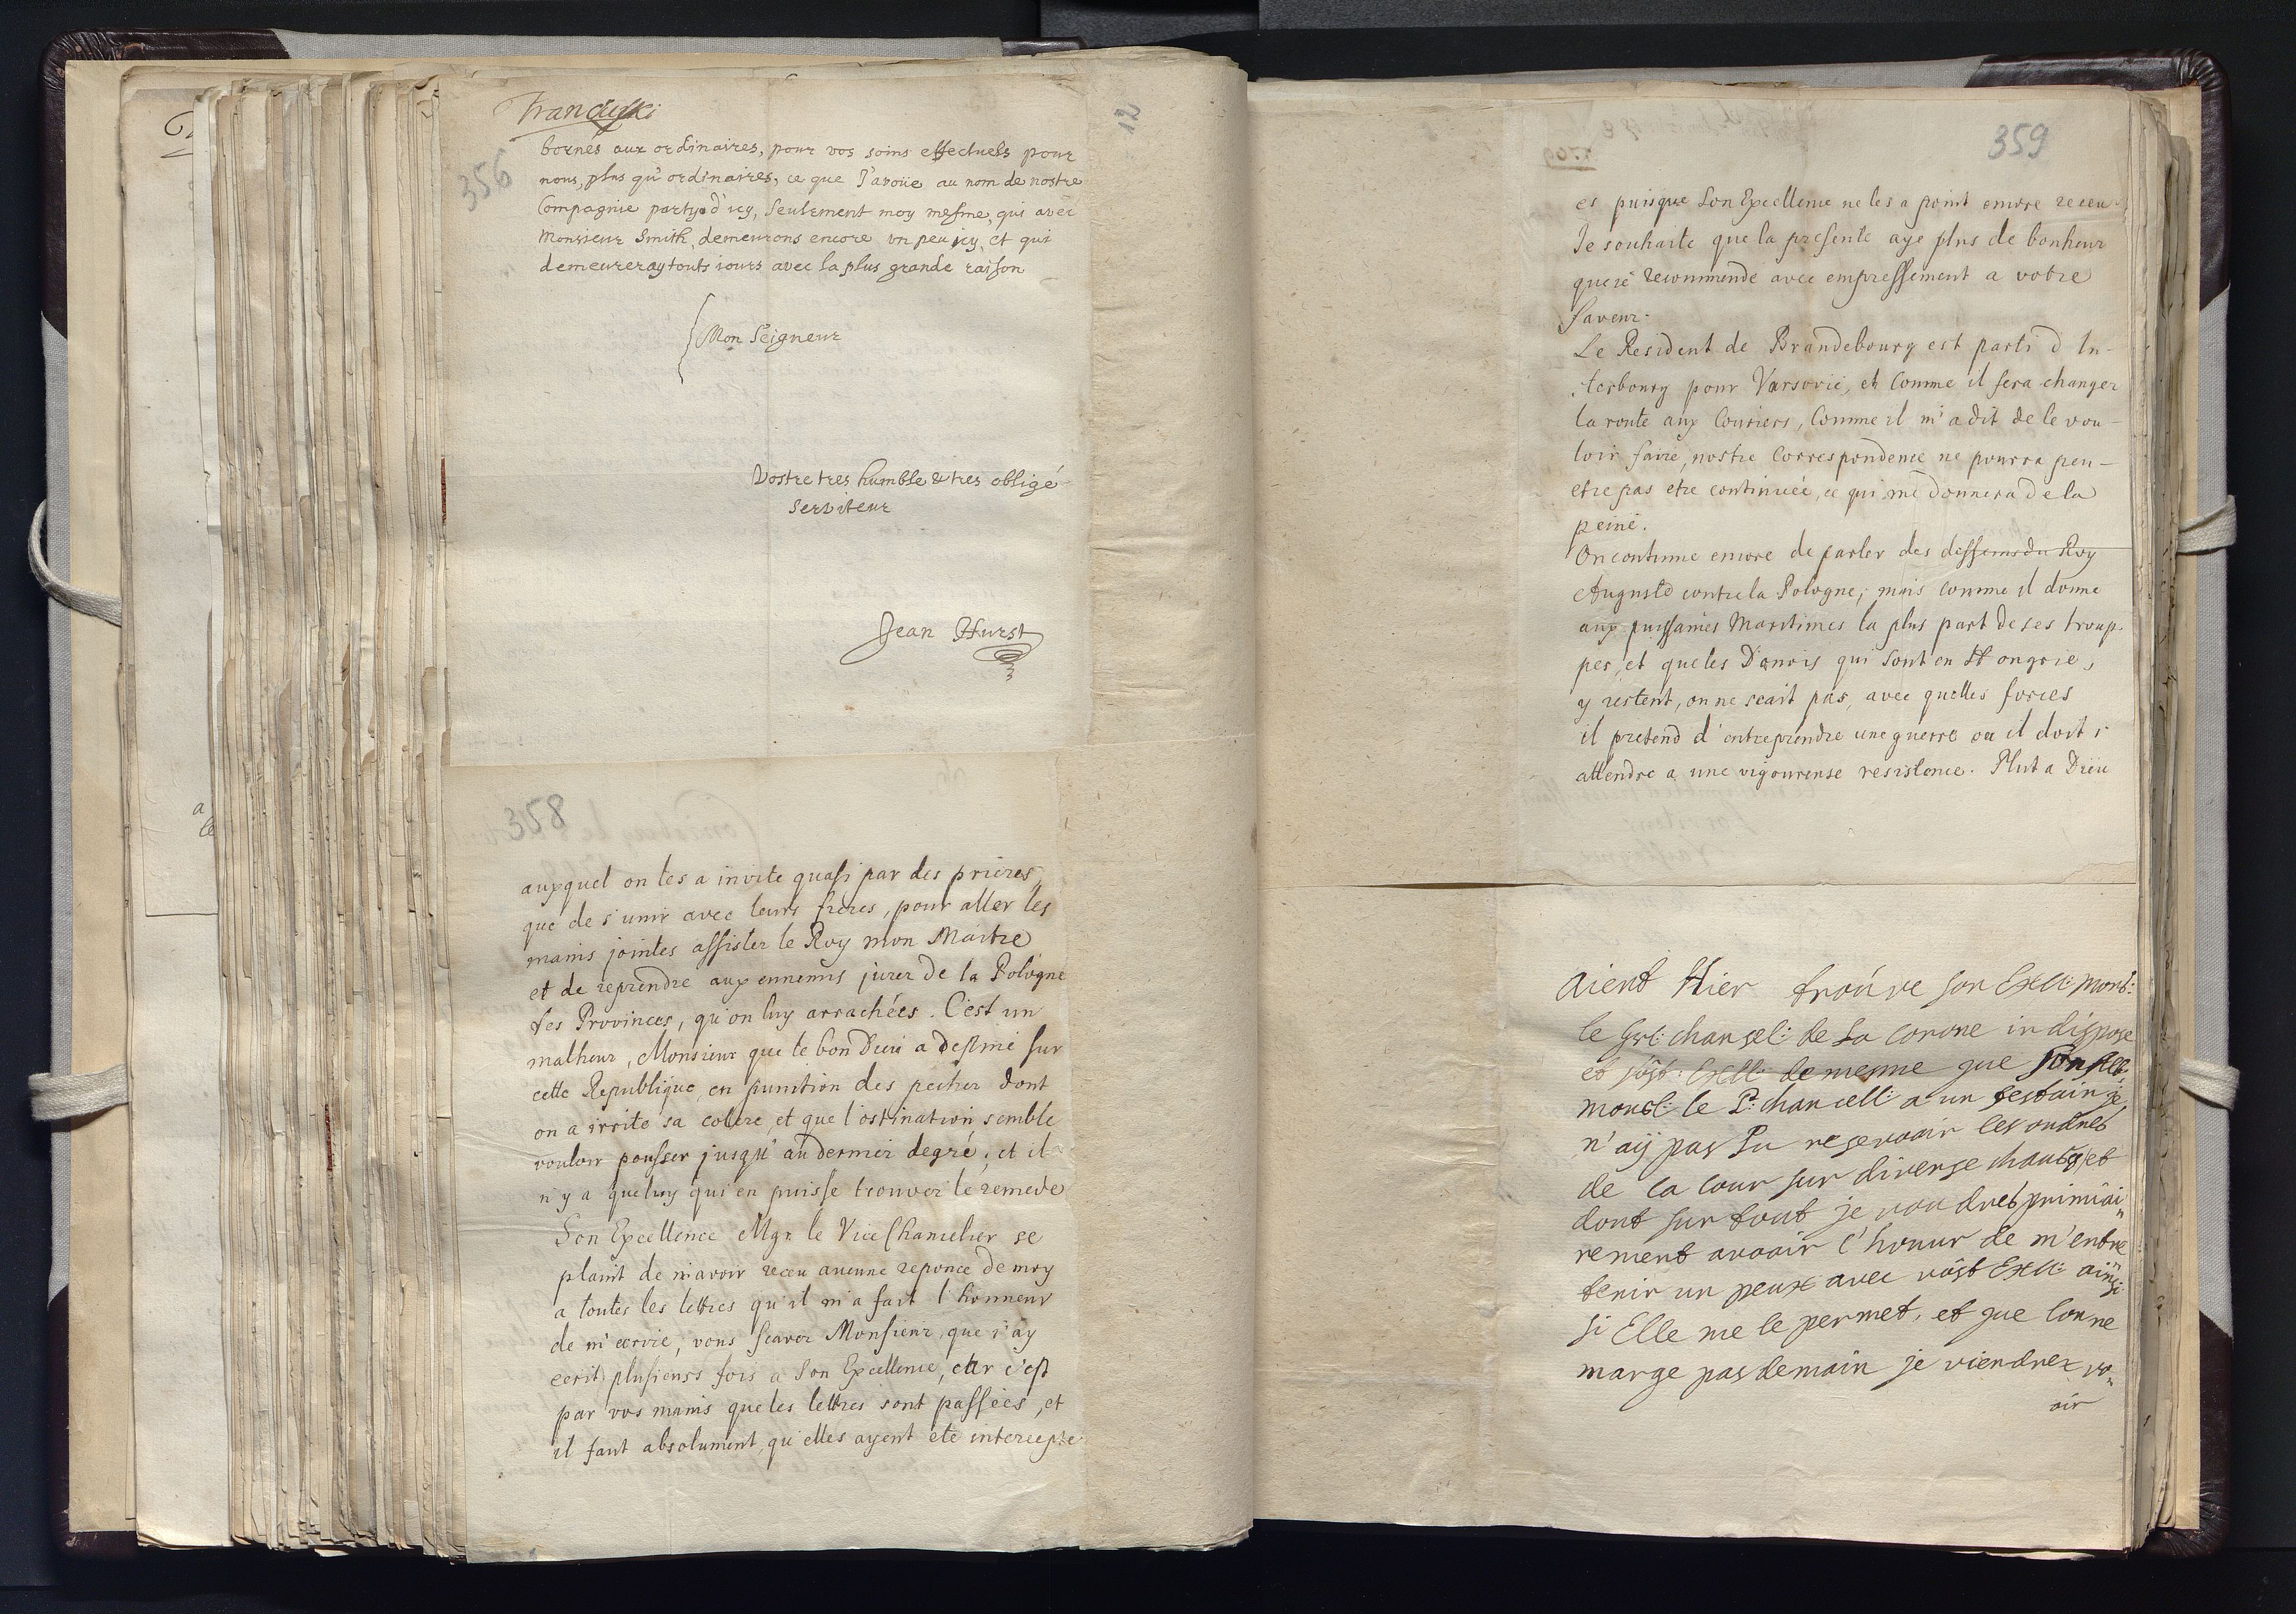 Francuski
356
bornés aux ordinaires, pour vos soins effectuels pour
nous, plus qu'ordinaires, ce que J'avoüe au nom de nostre
Compagnie partyė d'icy, seulement moy mesme, qui avec
Monsieur Smith, demeurons encore un peu icy, et qui
demeureray touts iours avec la plus grande raison
Mon Seigneur
Vostre tres humble & tres obligé
Serviteur
Jean Hurst
12
358
auxquel on les a invite quasi par des prieres,
que de s'unir avec leurs freres, pour aller les
mains jointes assister le Roy mon Maitre
et de reprendre aux ennemis jurez de la Pologne
les Provinces, qu'on luy arrachées. C'est un
malheur, Monsieur que le bon Dieu a destiné sur
cette Republique, en punition des pechez dont
on a irrite sa colere, et que l'ostination semble
vouloir pousser jusqu'au dernier degré, et il
n'y a que luy qui en puisse trouver le remede
Son Excellence Mgr. le Vice Chancelier se
plaint de n'avoir receu aucune reponce de moy
a toutes les lettres qu'il m'a fait l'honneur
de m'ecrire, vous scavez Monsieur, que j'ay
ecrit plusieurs fois a Son Excellence, car c'est
par vos mains que les lettres sont passées, et
il faut absolument, qu'elles ayent ete intercepte
359
es puisque Son Excellence ne les a point encore receu
Je souhaite que la presente aye plus de bonheur
que je recommende avec empressement a votre
faveur.
Le Resident de Brandebourg est parti d'In-
sterbourg pour Varsovie, et comme il fera changer
la route aux Couriers, comme il m'a dit de le vou-
loir faire, nostre Correspondence ne pourra peu-
etre pas etre continuée, ce qui me donnera de la
peine.
On continue encore de parler des desseins du Roy
Auguste contre la Pologne, mais comme il donne
aux puissances Maritimes la plus part de ses troup-
pes, et que les Danois qui sont en Hongrie,
y restent, on ne scait pas, avec quelles forces
il pretend d'entreprendre une guerre ou il doit s'
attendre a une vigoureuse resistence. Plut a Dieu
aient Hier troúve son Exll: mons:
le Grt: chansel: de La corone indispose
et vôst: Exll: de mesme que
monsl: le P: chancell: a un festain je
n'aij pas Pu resevoair les ordres
de la cour sur diverse chouse, et
dont sur tout je voudres primiai„
rement avoair l'honur de m'entre
tenir un peux avec vôst Exll: ainsi
si Elle me le permet, et que lon ne
marge pas demain je viendrez vo„
oir